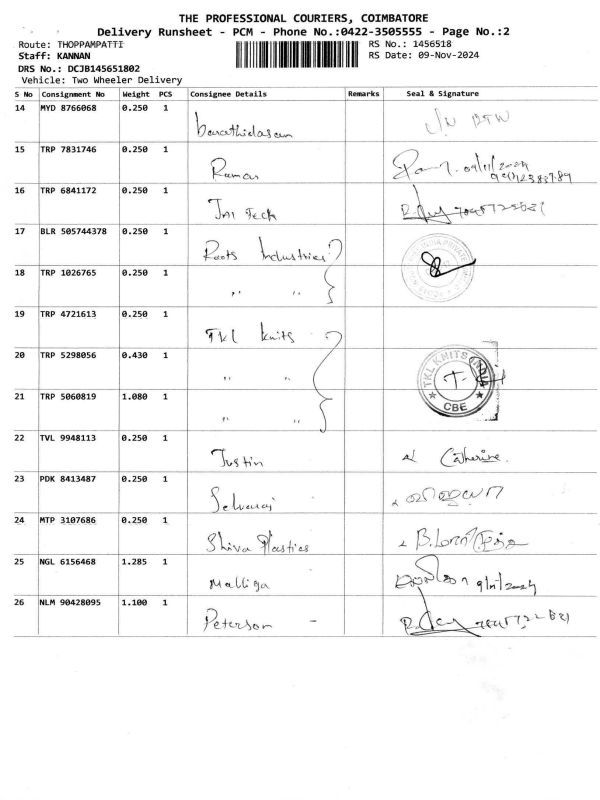 THE PROFESSIONAL COURIERS, COIMBATORE
Delivery Runsheet - PCM - Phone No.:0422-3505555 - Page No.:2
Route: THOPPAMPATTI
RS No.: 1456518
Staff: KANNAN
RS Date: 09-Nov-2024
DRS No.: DCJB145651802
Vehicle: Two Wheeler Delivery
S No Consignment No Weight PCS Consignee Details Remarks Seal & Signature
14 MYD 8766068 0.250 1 barathidasan
15 TRP 7831746 0.250 1 Raman
16 TRP 6841172 0.250 1 Jai Teck
17 BLR 505744378 0.250 1 Roots Industries
18 TRP 1026765 0.250 1 " "
19 TRP 4721613 0.250 1 TKL knits
20 TRP 5298056 0.430 1 " " TKL KNITS INDIA CBE
21 TRP 5060819 1.080 1 " "
22 TVL 9948113 0.250 1 Justin Catherine.
23 PDK 8413487 0.250 1 Selvaraj
24 MTP 3107686 0.250 1 Shiva Plastics
25 NGL 6156468 1.285 1 Malliga 9/11/2024
26 NLM 90428095 1.100 1 Peterson -